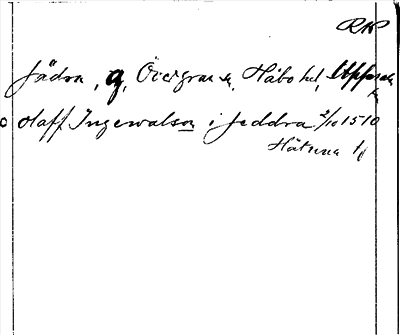 RAP
Jädra, g, Övergrans sn, Håbo hd, Uppsala l.
Olaff Ingewalson i Jeddra 2/10 1510
Håtuna 1f